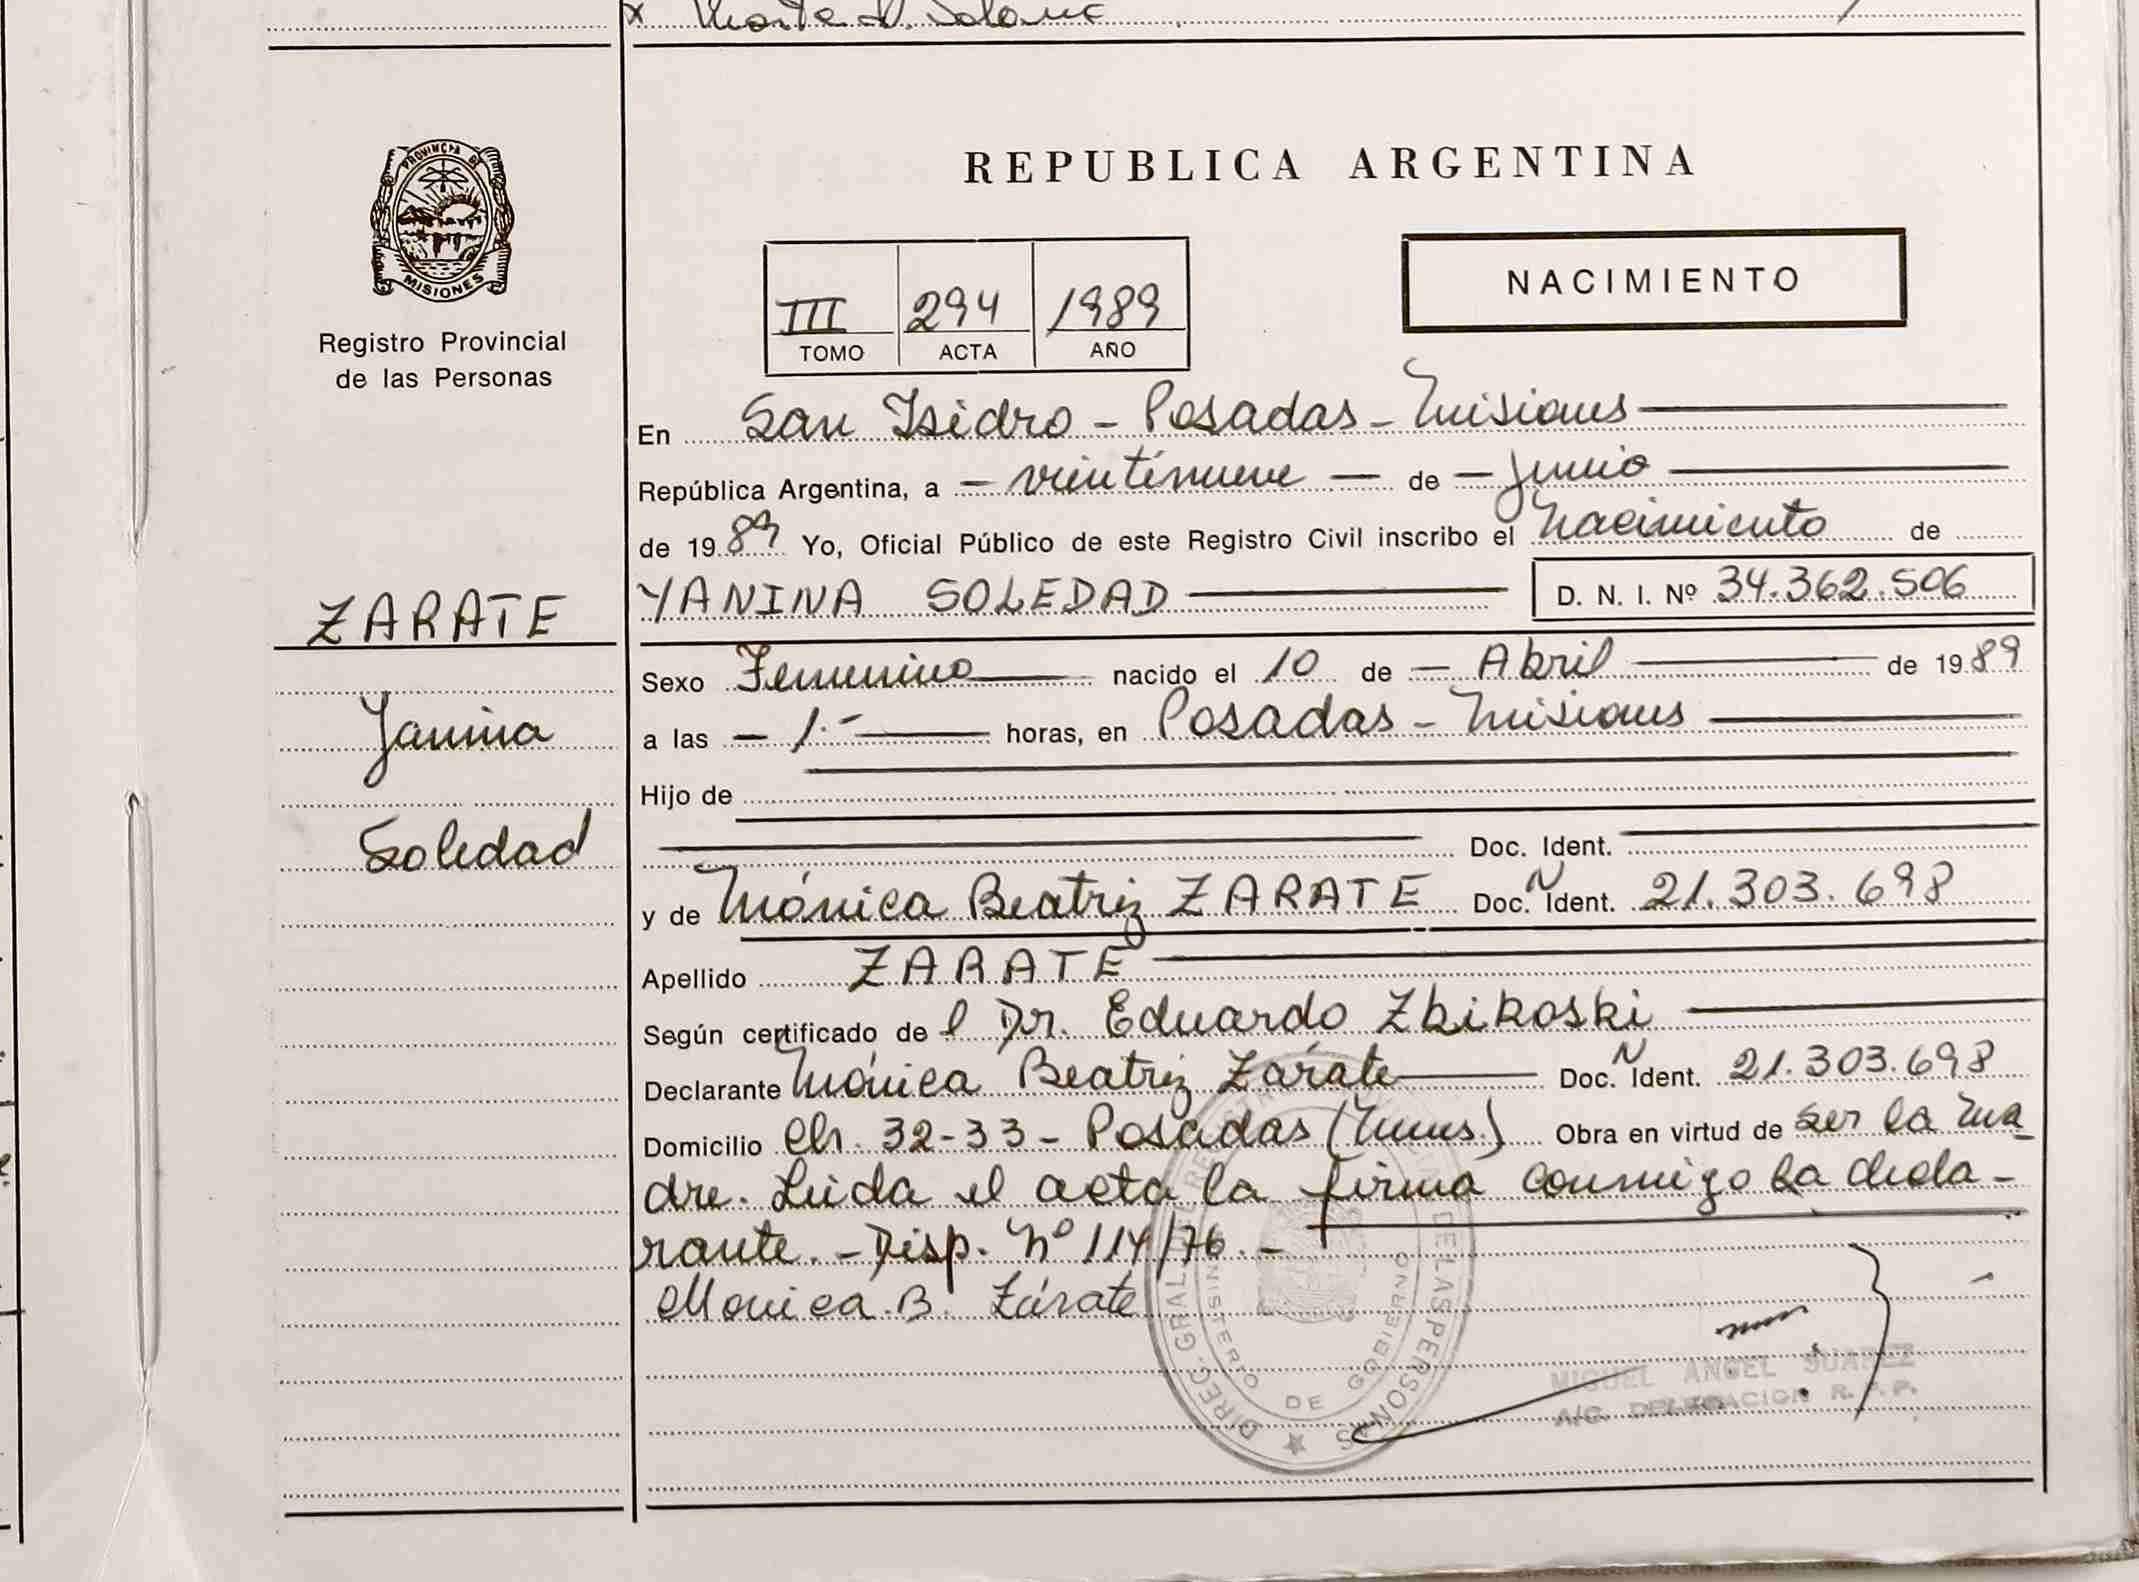 PROVINCIA DE
MISIONES
Registro Provincial
de las Personas
ZARATE
Yanina
Soledad
REPUBLICA ARGENTINA
III 294 1989
TOMO ACTA AÑO
NACIMIENTO
En San Isidro - Posadas - Misiones
República Argentina, a - veintinueve - de - Junio
de 1989 Yo, Oficial Público de este Registro Civil inscribo el Nacimiento de
YANINA SOLEDAD D. N. I. Nº 34.362.506
Sexo Femenino nacido el 10 de - Abril de 1989
a las - 1.- horas, en Posadas - Misiones
Hijo de
Doc. Ident.
y de Mónica Beatriz ZARATE Doc. N Ident. 21.303.698
Apellido ZARATE
Según certificado de l Dr. Eduardo Zbikoski
Declarante Mónica Beatriz Zárate Doc. N Ident. 21.303.698
Domicilio Ch. 32-33 - Posadas (Mnes.) Obra en virtud de ser la ma
dre. Leida el acta la firma conmigo la decla-
rante. - Disp. Nº 114/76. -
Monica B. Zárate
DIREC. GRAL. DE LAS PERSONAS
MINISTERIO DE GOBIERNO
MIGUEL ANGEL SUAREZ
A/C. DELEGACION R. P. P.